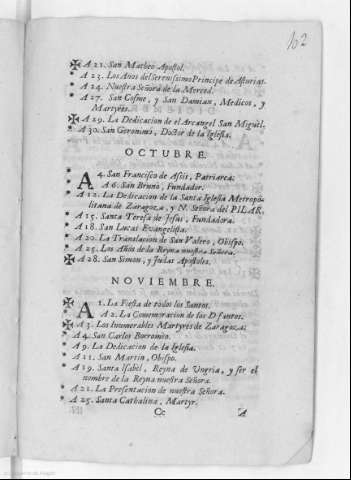 102
✠ A 21. San Matheo Apostol.
* A 23. Los Años del Serenissimo Principe de Asturias.
* A 24. Nuestra Señora de la Merced.
* A 27. San Cosme, y San Damian, Medicos, y
Martyres.
✠ A 29. La Dedicacion de el Arcangel San Miguel.
* A 30. San Geronimo, Doctor de la Iglesia.
OCTUBRE.
* A 4. San Francisco de Assis, Patriarca.
* A 6. San Bruno, Fundador.
* A 12. La Dedicacion de la Santa Iglesia Metropo-
litana de Zaragoza, y N. Señora del PILAR.
* A 15. Santa Teresa de Jesus, Fundadora.
* A 18. San Lucas Evangelista.
* A 20. La Translacion de San Valero, Obispo.
* A 25. Los Años de la Reyna nuestra Señora.
✠ A 28. San Simon, y Judas Apostoles.
NOVIEMBRE.
✠ A 1. La Fiesta de todos los Santos.
* A 2. La Comemoracion de los Difuntos.
✠ A 3. Los Inumerables Martyres de Zaragoza.
* A 4. San Carlos Borromeo.
* A 9. La Dedicacion de la Iglesia.
* A 11. San Martin, Obispo.
* A 19. Santa Isabel, Reyna de Ungria, y ser el
nombre de la Reyna nuestra Señora.
* A 21. La Presentacion de nuestra Señora.
* A 25. Santa Cathalina, Martyr.
Cc A